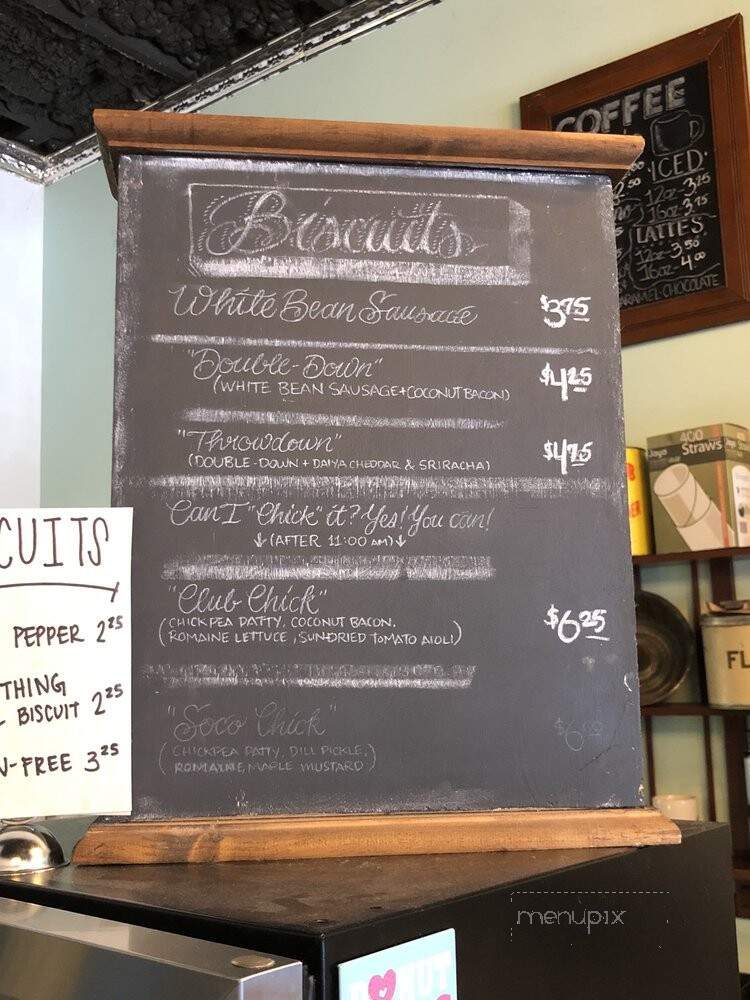 Biscuits
White Bean Sausage $3.75
"Double-Down" $4.25
(WHITE BEAN SAUSAGE+COCONUT BACON)
"Throwdown" $4.75
(DOUBLE-DOWN + DAIYA CHEDDAR & SRIRACHA)
Can I "Chick" it? Yes! You can!
↓(AFTER 11:00 AM)↓
"Club Chick" $6.25
(CHICKPEA PATTY, COCONUT BACON,
ROMAINE LETTUCE, SUNDRIED TOMATO AIOLI)
"Soco Chick" $6.00
(CHICKPEA PATTY, DILL PICKLE,
ROMAINE, MAPLE MUSTARD)
CUITS
PEPPER 2 25
THING
BISCUIT 2 25
-FREE 3 25
COFFEE
ICED
12oz 3.25
16oz 3.75
LATTES
12oz 3.50
16oz 4.00
CHOCOLATE
400
Straws
FL
menupix